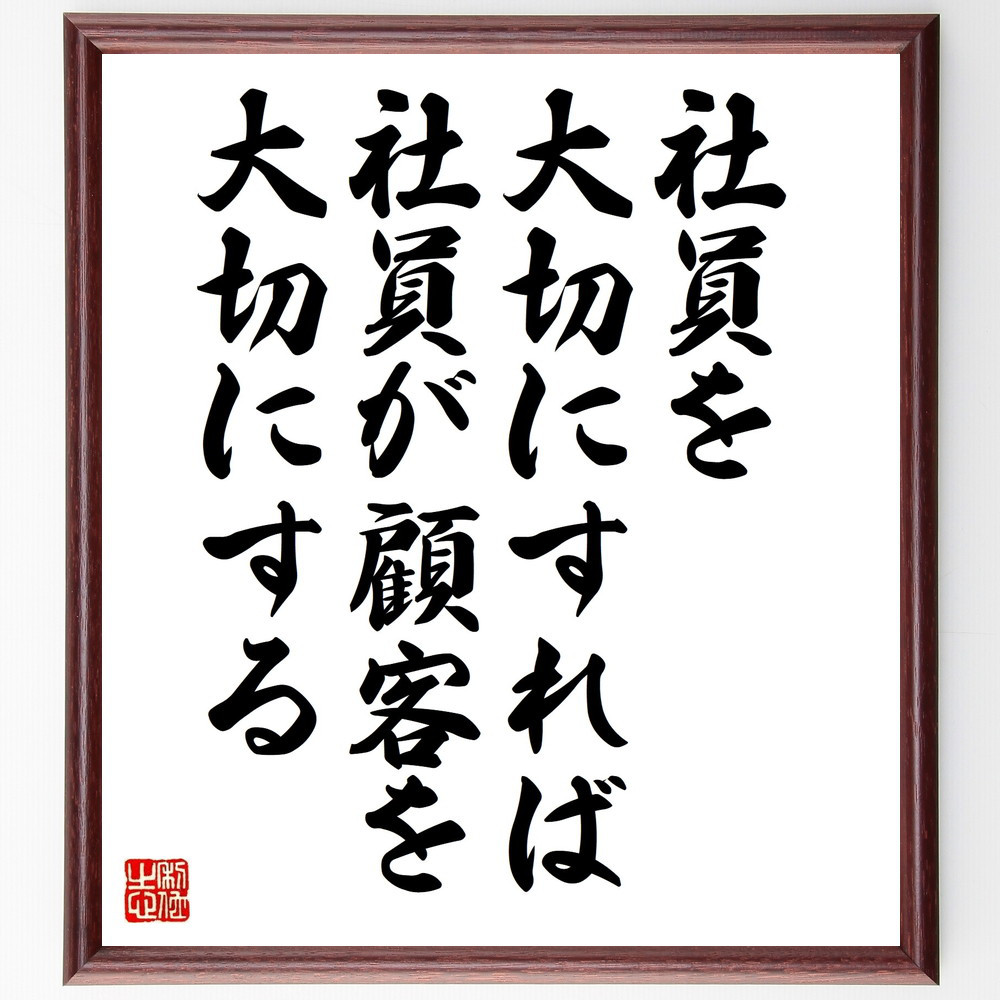 社員を
大切にすれば
社員が顧客を
大切にする